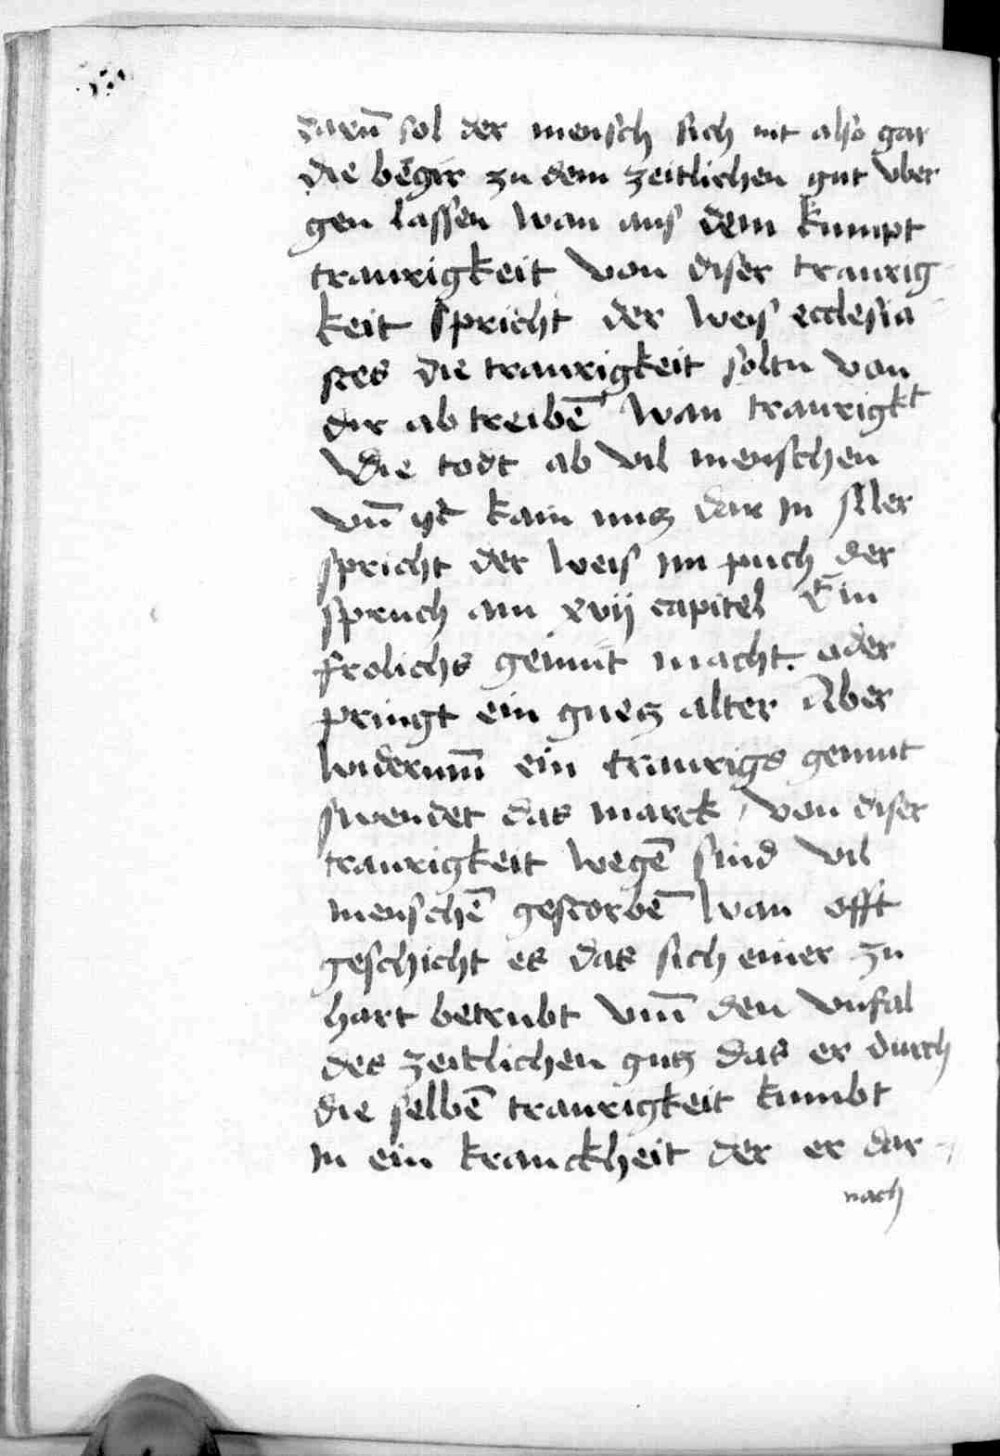 darūm sol der mensch sich nit also gar
die begir zu dem zeitlichen gut vber
gen lassen wan aus dem kumpt
traurigkeit von diser traurig
keit spricht der weis ecclesia
stes die traurigkeit soltu von
dir ab treibē wan traurigkt
die todt ab vil menschen
vn̄ ist kain nutz dar in
spricht der weis im puch der
spruch am xvij capitel Ein
frolichs gemut macht oder
pringt ein guetz alter Aber
widerum̄ ein traurigs gemut
swendet das marck / von diser
traurigkeit wegē sind vil
menschē gestorbē wan offt
geschicht es das sich einer zu
hart betrubt vm̄ den vnfal
des zeitlichen gutz das er durch
die selbē traurigkeit kumbt
in ein kranckheit der er dar
nach